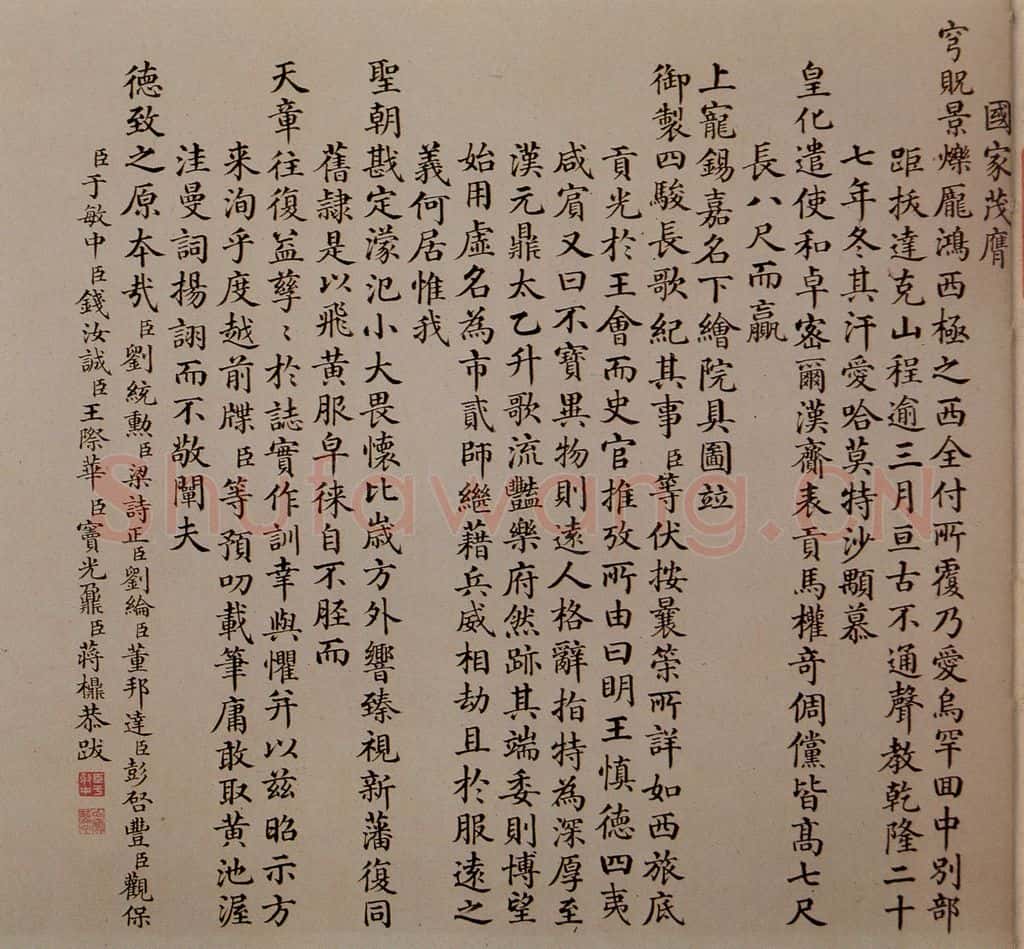 國家茂膺
穹貺景爍龐鴻西極之西全付所覆乃愛烏罕回中別部
距扶達克山程逾三月亘古不通聲教乾隆二十
七年冬其汗愛哈莫特沙顒慕
皇化遣使和卓密爾漢齎表貢馬權奇倜儻皆高七尺
長八尺而贏
上寵錫嘉名下繪院具圖竝
御製四駿長歌紀其事臣等伏按曩筞所詳如西旅底
貢光於王會而史官推攷所由曰明王慎德四夷
咸賓又曰不寶異物則遠人格辭指特為深厚至
漢元鼎太乙升歌流豔樂府然跡其端委則博望
始用虛名為市貳師繼藉兵威相劫且於服遠之
義何居惟我
聖朝戡定濛汜小大畏懷比歲方外響臻視新藩復同
舊隸是以飛黃服皁徠自不脛而
天章往復益孳〻於誌實作訓幸與懼并以茲昭示方
来洵乎度越前牒臣等預叨載筆庸敢取黃池渥
洼曼詞揚詡而不敬闡夫
德致之原本㢤臣劉統勲臣梁詩正臣劉綸臣董邦達臣彭啓豐臣觀保
臣于敏中臣錢汝誠臣王際華臣竇光鼐臣蔣檙恭跋
Shufawang.CN